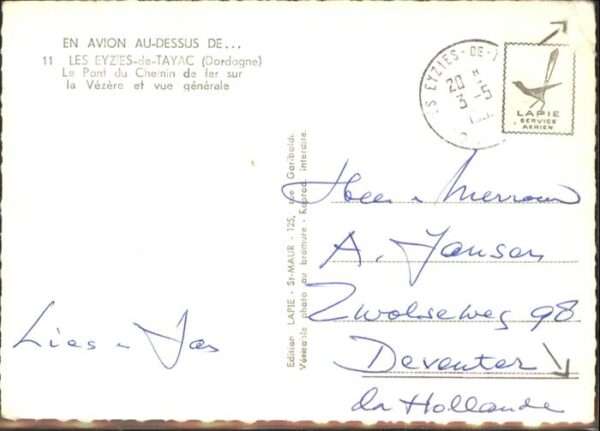 EN AVION AU-DESSUS DE...
11 LES EYZIES-de-TAYAC (Dordogne)
Le Pont du Chemin de fer sur
la Vézère et vue générale
S EYZIES-DE-T
20 H
3-5
LAPIE
SERVICE
AERIEN
Edition LAPIE - St-MAUR - 125, rue Garibaldi
Véritable photo au bromure - Reprod. interdite.
Heer - Mevrouw
A. Jansen
Zwolseweg 98
Deventer
la Hollande
Lies - Jas